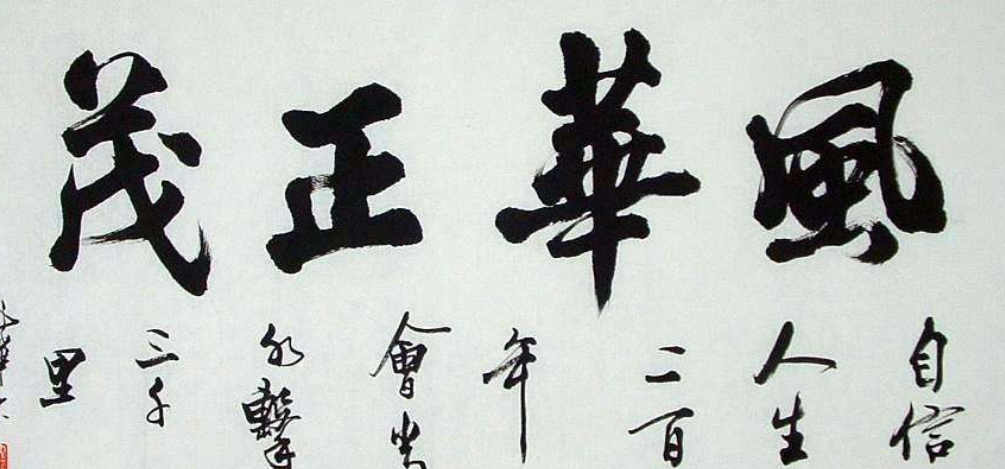 風華正茂
自信
人生
二百
年
會當
水擊
三千
里